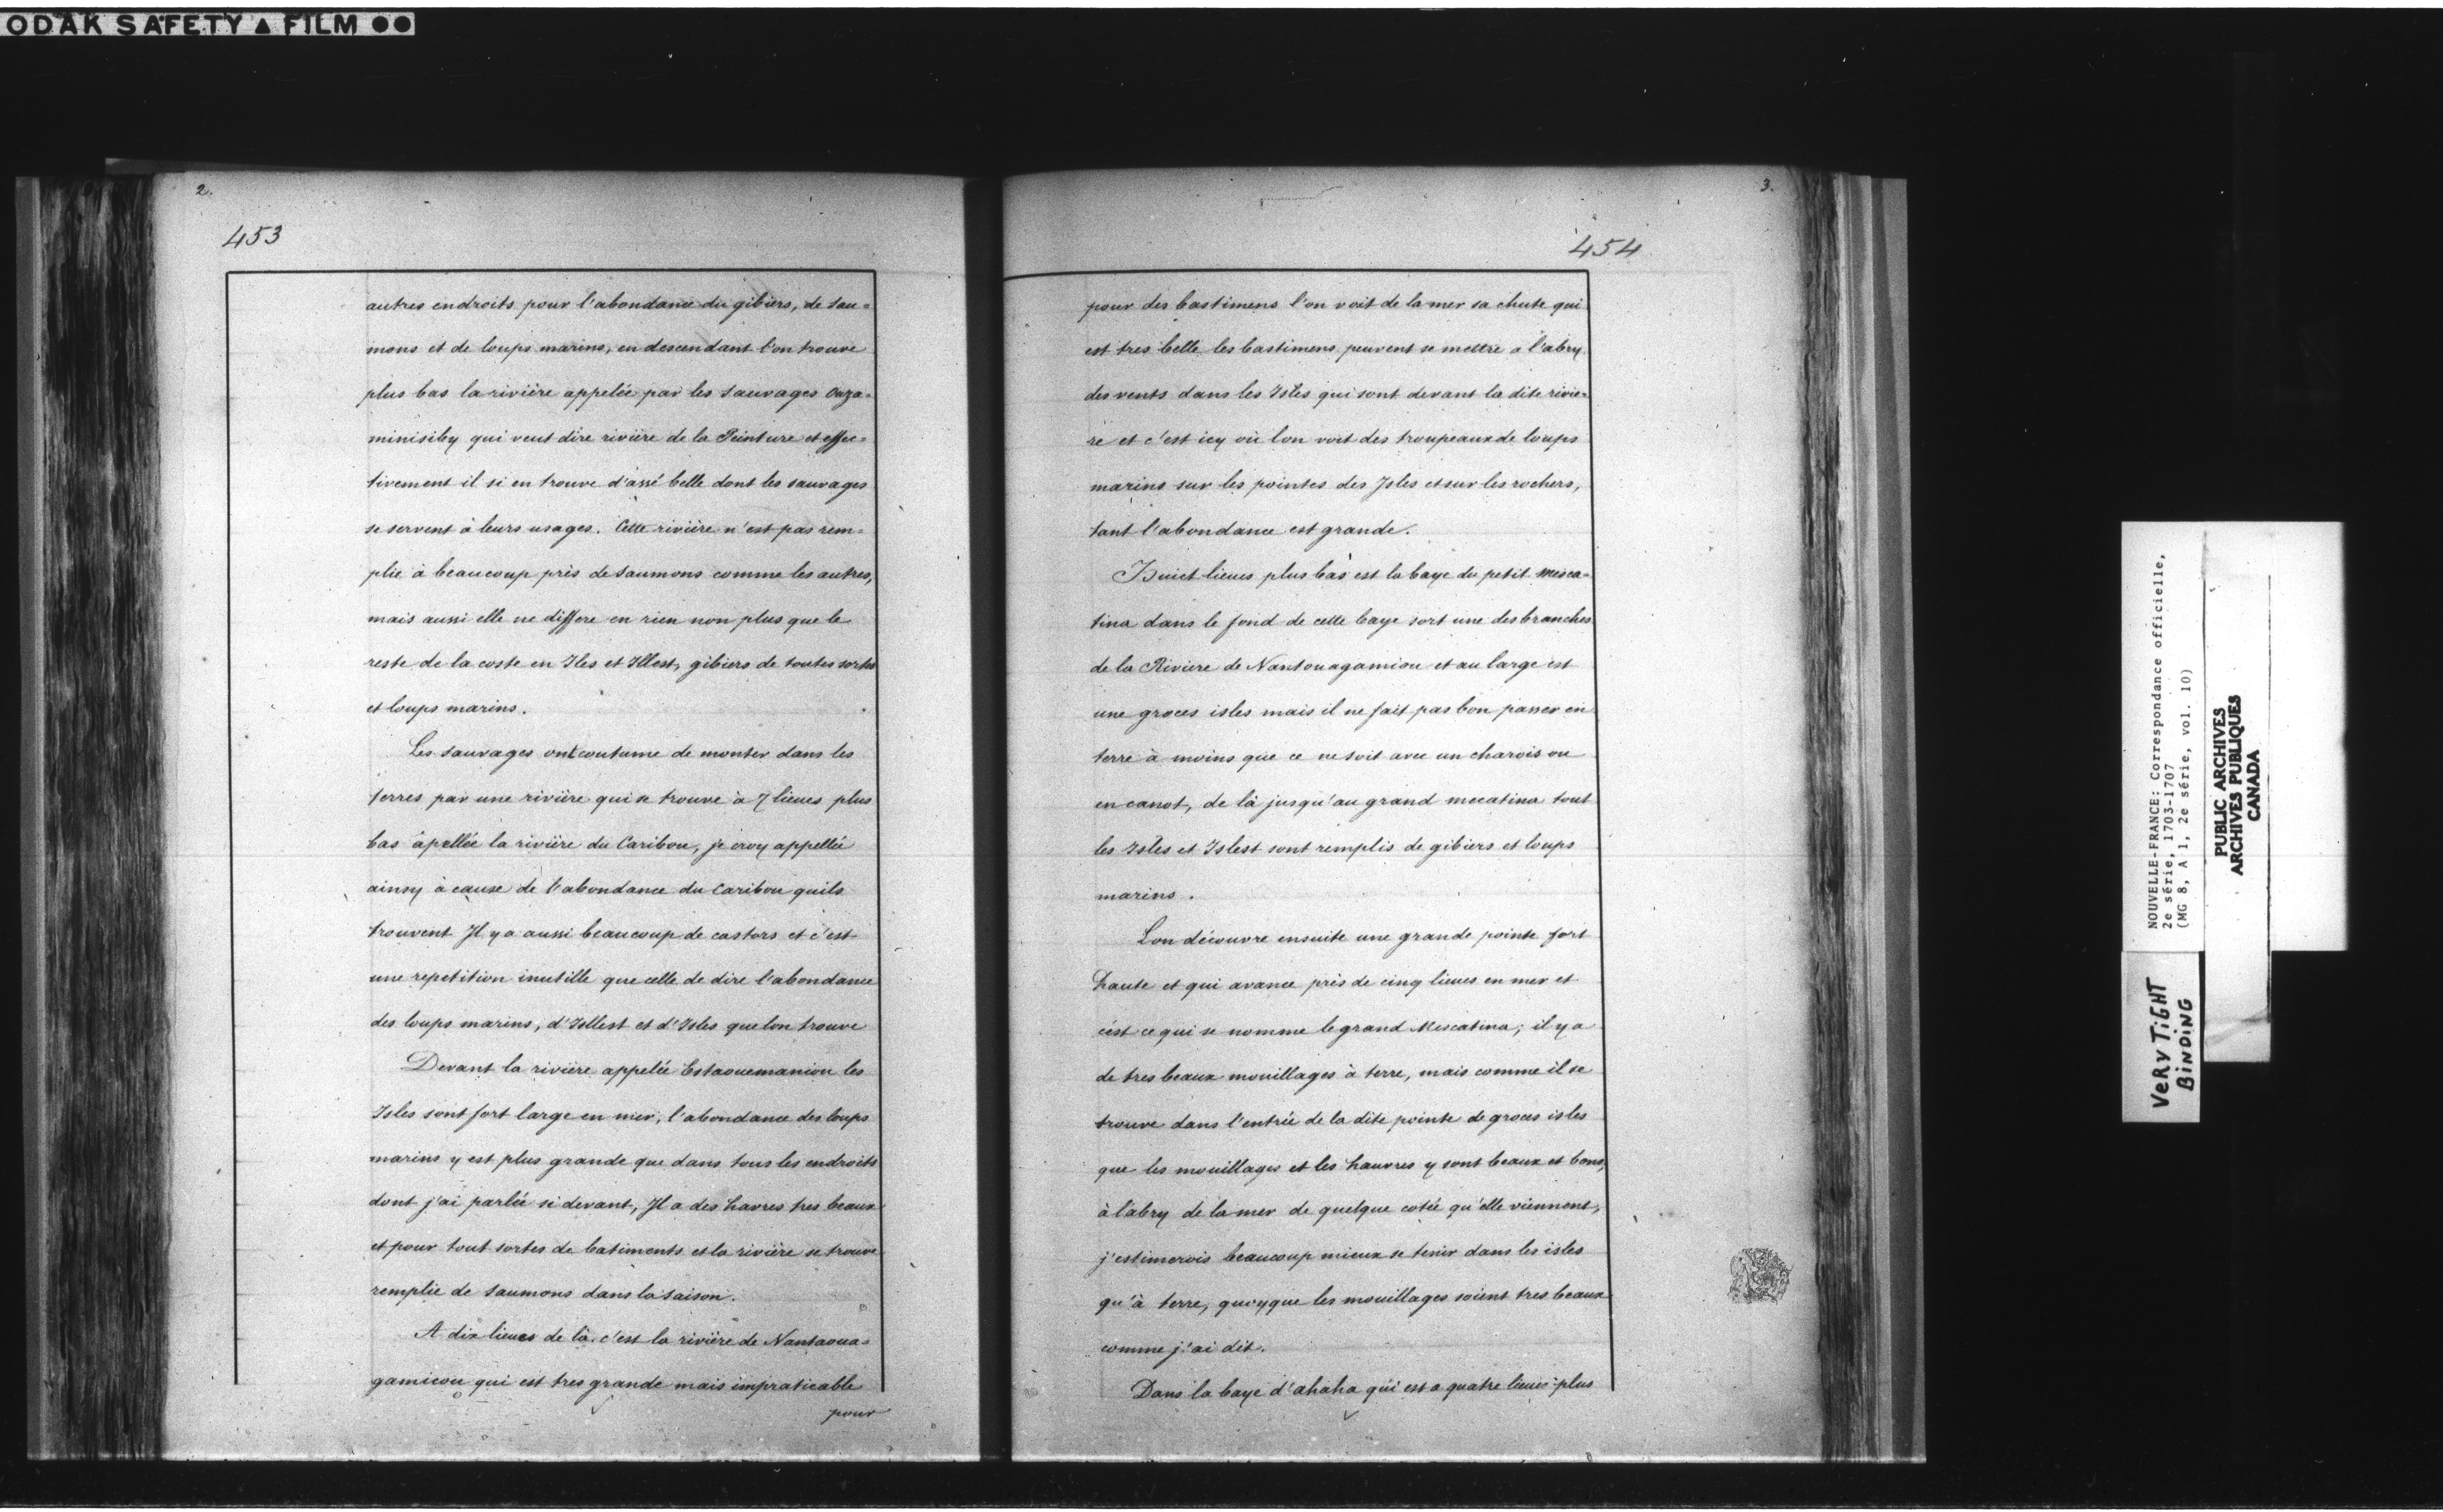 ODAK SAFETY ▲ FILM ●●
2.
453
autres endroits pour l'abondance du gibiers, de sau=
mons et de loups marins, en descendant l'on trouve
plus bas la rivière appelée par les sauvages Ouza=
minisiby qui veut dire rivière de la Peinture et effec=
tivement il si en trouve d'assé belle dont les sauvages
se servent à leurs usages. Cette rivière n'est pas rem=
plie à beaucoup près de saumons comme les autres,
mais aussi elle ne differe en rien non plus que le
reste de la coste en Iles et Illest, gibiers de toutes sortes
et loups marins.
Les sauvages ont coutume de monter dans les
terres par une rivière qui se trouve à 7 lieues plus
bas apellée la rivière du Caribou, je croy appellée
ainsy à cause de l'abondance du Caribou quils
trouvent Il y a aussi beaucoup de castors et c'est
une repetition inutille que celle de dire l'abondance
des loups marins, d'Isllest et d'Isles que lon trouve
Devant la rivière appelée Estaouemaniou les
Isles sont fort large en mer, l'abondance des loups
marins y est plus grande que dans tous les endroits
dont j'ai parlée si devant, Il a des havres tres beaux
et pour tout sortes de batiments et la rivière se trouve
remplie de saumons dans la saison.
A dix lieues de là c'est la rivière de Nantaoua=
gamiou qui est tres grande mais impraticable
pour
3.
454
pour des bastimens l'on voit de la mer sa chute qui
est tres belle les bastimens peuvent se mettre a l'abry
des vents dans les Isles qui sont devant la dite rivie=
re et c'est icy où lon voit des troupeaux de loups
marins sur les pointes des Isles et sur les rochers,
tant l'abondance est grande.
Huict lieues plus bas est la baye du petit Mesca=
tina dans le fond de cette baye sort une des branches
de la Riviere de Nantouagamiou et au large est
une groces isles mais il ne fait pas bon passer en
terre à moins que ce ne soit avec un charois ou
en canot, de là jusqu'au grand mecatina tout
les Isles et Islest sont remplis de gibiers et loups
marins.
Lon découvre ensuite une grande pointe fort
haute et qui avance près de cinq lieues en mer et
c'est ce qui se nomme le grand Mescatina; il y a
de tres beaux mouillages à terre, mais comme il se
trouve dans l'entrée de la dite pointe de groces isles
que les mouillages et les hauvres y sont beaux et bons,
à l'abry de la mer de quelque cotée qu'elle viennent,
j'estimerois beaucoup mieux se tenir dans les isles
qu'à terre, quoyque les mouillages soient tres beaux
comme j'ai dit.
Dans la baye d'ahaha qui est a quatre lieues plus
NOUVELLE-FRANCE: Correspondance officielle,
2e série, 1703-1707
(MG 8, A 1, 2e série, vol. 10)
PUBLIC ARCHIVES
ARCHIVES PUBLIQUES
CANADA
VERY TIGHT
BINDING